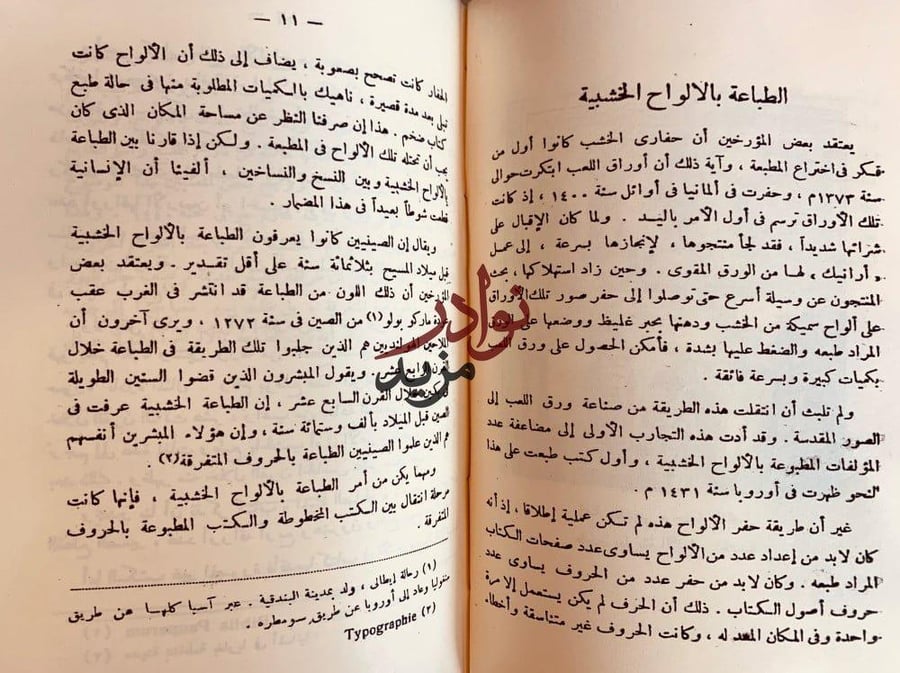 الطباعة بالألواح الخشبية
يعتقد بعض المؤرخين أن حفارى الخشب كانوا أول من
فكر فى اختراع المطبعة ، وآية ذلك أن أوراق اللعب ابتكرت حوالى
سنة ١٣٧٣م ، وحفرت فى ألمانيا فى أوائل سنة ١٤٠٠ ، إذ كانت
تلك الأوراق ترسم فى أول الأمر باليد . ولما كان الإقبال على
شرائها شديداً ، فقد لجأ منتجوها ، لإنجازها بسرعة ، إلى عمل
« أرانيك » لها من الورق المقوى . وحين زاد استهلاكها ، بحث
المنتجون عن وسيلة أسرع حتى توصلوا إلى حفر صور تلك الأوراق
على ألواح سميكة من الخشب ودهنها بحبر غليظ ووضعها على
المراد طبعه والضغط عليها بشدة ، فأمكن الحصول على ورق اللعب
بكميات كبيرة وبسرعة فائقة .
ولم تلبث أن انتقلت هذه الطريقة من صناعة ورق اللعب إلى
الصور المقدسة . وقد أدت هذه التجارب الأولى إلى مضاعفة عدد
المؤلفات المطبوعة بالألواح الخشبية ، وأول كتب طبعت على هذا
النحو ظهرت فى أوروبا سنة ١٤٣١ م .
غير أن طريقة حفر الألواح هذه لم تكن عملية إطلاقا ، إذ أنه
كان لابد من إعداد عدد من الألواح يساوى عدد صفحات الكتاب
المراد طبعه . وكان لابد من حفر عدد من الحروف يساوى عدد
حروف أصول الكتاب . ذلك أن الحرف لم يكن يستعمل إلا مرة
واحدة وفى المكان المعد له ، وكانت الحروف غير متناسقة وأخطاء
— ١١ —
الحفار كانت تصحح بصعوبة ، يضاف إلى ذلك أن الألواح كانت
تبلى بعد مدة قصيرة ، ناهيك بالكميات المطلوبة منها فى حالة طبع
كتاب ضخم . هذا إن صرفنا النظر عن مساحة المكان الذى كان
يجب أن تحتله تلك الألواح فى المطبعة . ولكن إذا قارنا بين الطباعة
بالألواح الخشبية وبين النسخ والنساخين ، ألفينا أن الإنسانية
قطعت شوطاً بعيداً فى هذا المضمار .
ويقال إن الصينيين كانوا يعرفون الطباعة بالألواح الخشبية
قبل ميلاد المسيح بثلاثمائة سنة على أقل تقدير . ويعتقد بعض
المؤرخين أن ذلك اللون من الطباعة قد انتشر فى الغرب عقب
عودة ماركو بولو (١) من الصين فى سنة ١٢٧٣ ، ويرى آخرون أن
اللاجئين الهولنديين هم الذين جلبوا تلك الطريقة فى الطباعة خلال
القرن الرابع عشر . ويقول المبشرون الذين قضوا السنين الطويلة
خلال القرن السابع عشر ، إن الطباعة الخشبية عرفت فى
الصين قبل الميلاد بألف وستمائة سنة ، وإن هؤلاء المبشرين أنفسهم
هم الذين علموا الصينيين الطباعة بالحروف المتفرقة (٢) .
ومهما يكن من أمر الطباعة بالألواح الخشبية ، فإنها كانت
مرحلة انتقال بين الكتب المخطوطة والكتب المطبوعة بالحروف
المتفرقة .
(١) رحالة إيطالى ، ولد بمدينة البندقية . عبر آسيا كلها عن طريق
منغوليا وعاد إلى أوروبا عن طريق سومطره .
(٢) Typographie
نوادر
مزيد